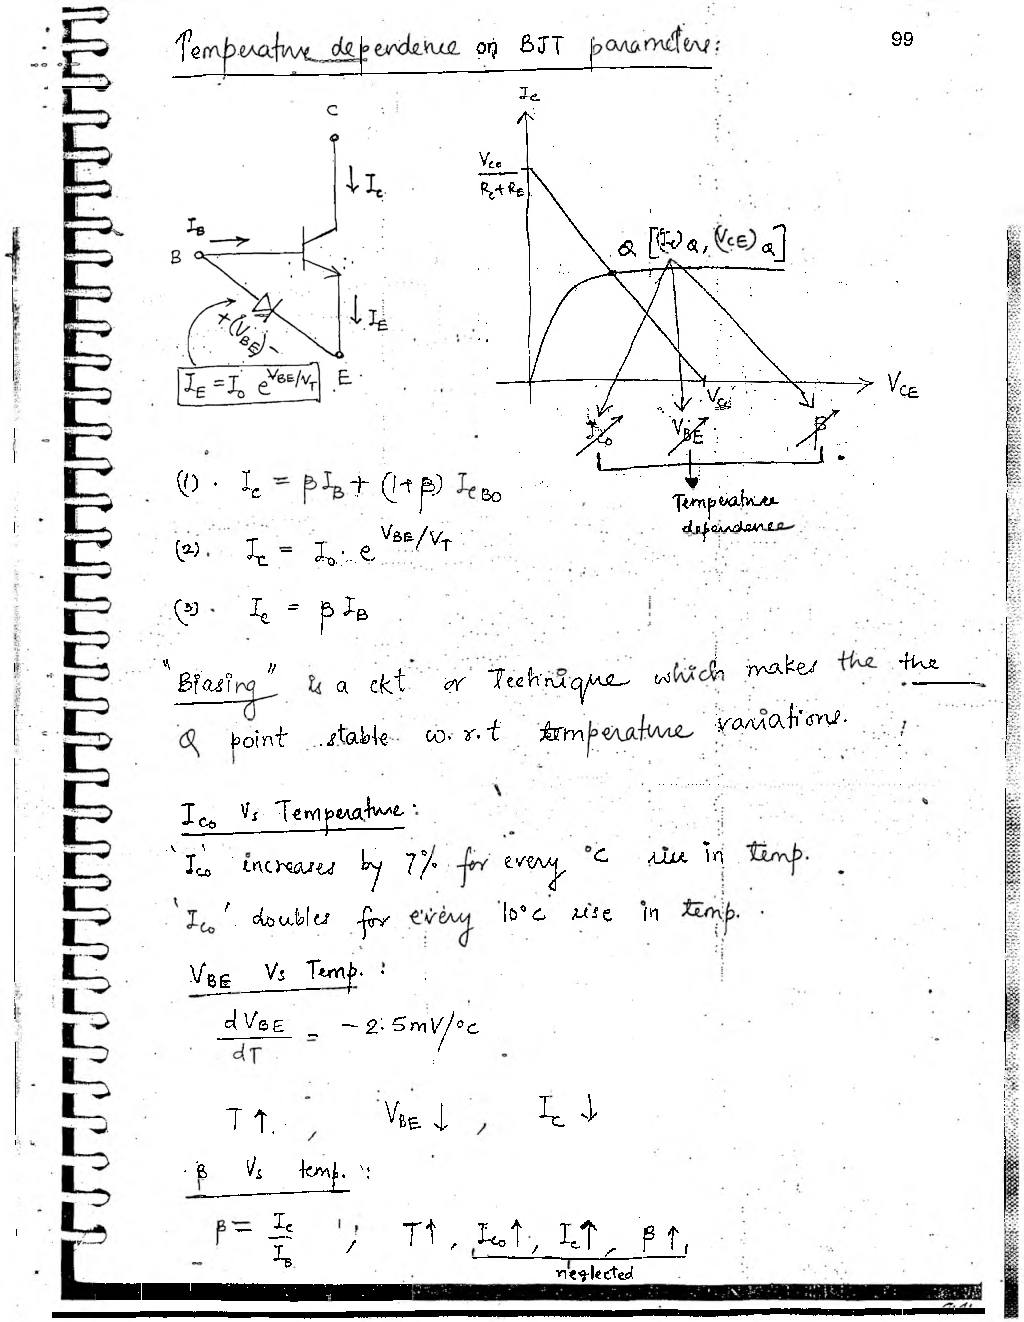 Temperature dependence on BJT parameters:
99
C
↓ Ic
IB
B
↓ IE
+(VBE)-
IE = Io e^VBE/VT
E
Ic
Vcc
Rc+RE
Q [(Ic)Q, (VCE)Q]
VCE
Ico
VBE
β
Temperature
dependence
(1). Ic = βIB + (1+β) ICBO
(2). Ic = Io. e^VBE/VT
(3). Ic = β IB
"Biasing" is a ckt or Technique which makes the the
Q point stable w.r.t temperature variations.
Ico Vs Temperature:
'Ico' increases by 7% for every °c rise in temp.
'Ico' doubles for every 10°c rise in temp.
VBE Vs Temp. :
dVBE/dT = -2.5mV/°c
T↑, VBE↓, Ic↓
β Vs temp. :
β = Ic/IB ; T↑, Ico↑, Ic↑, β↑,
neglected